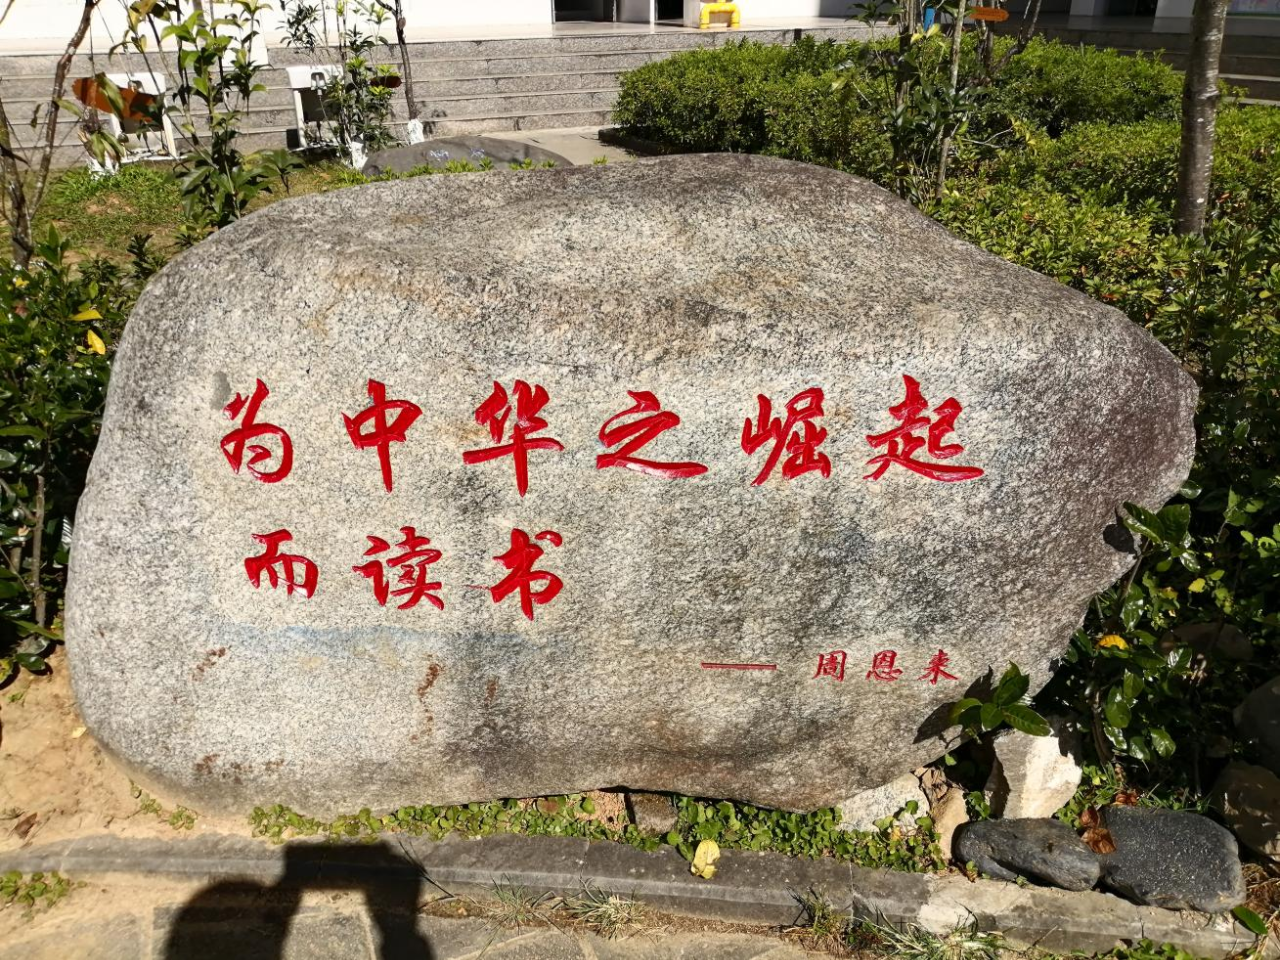 为中华之崛起
而读书
——周恩来